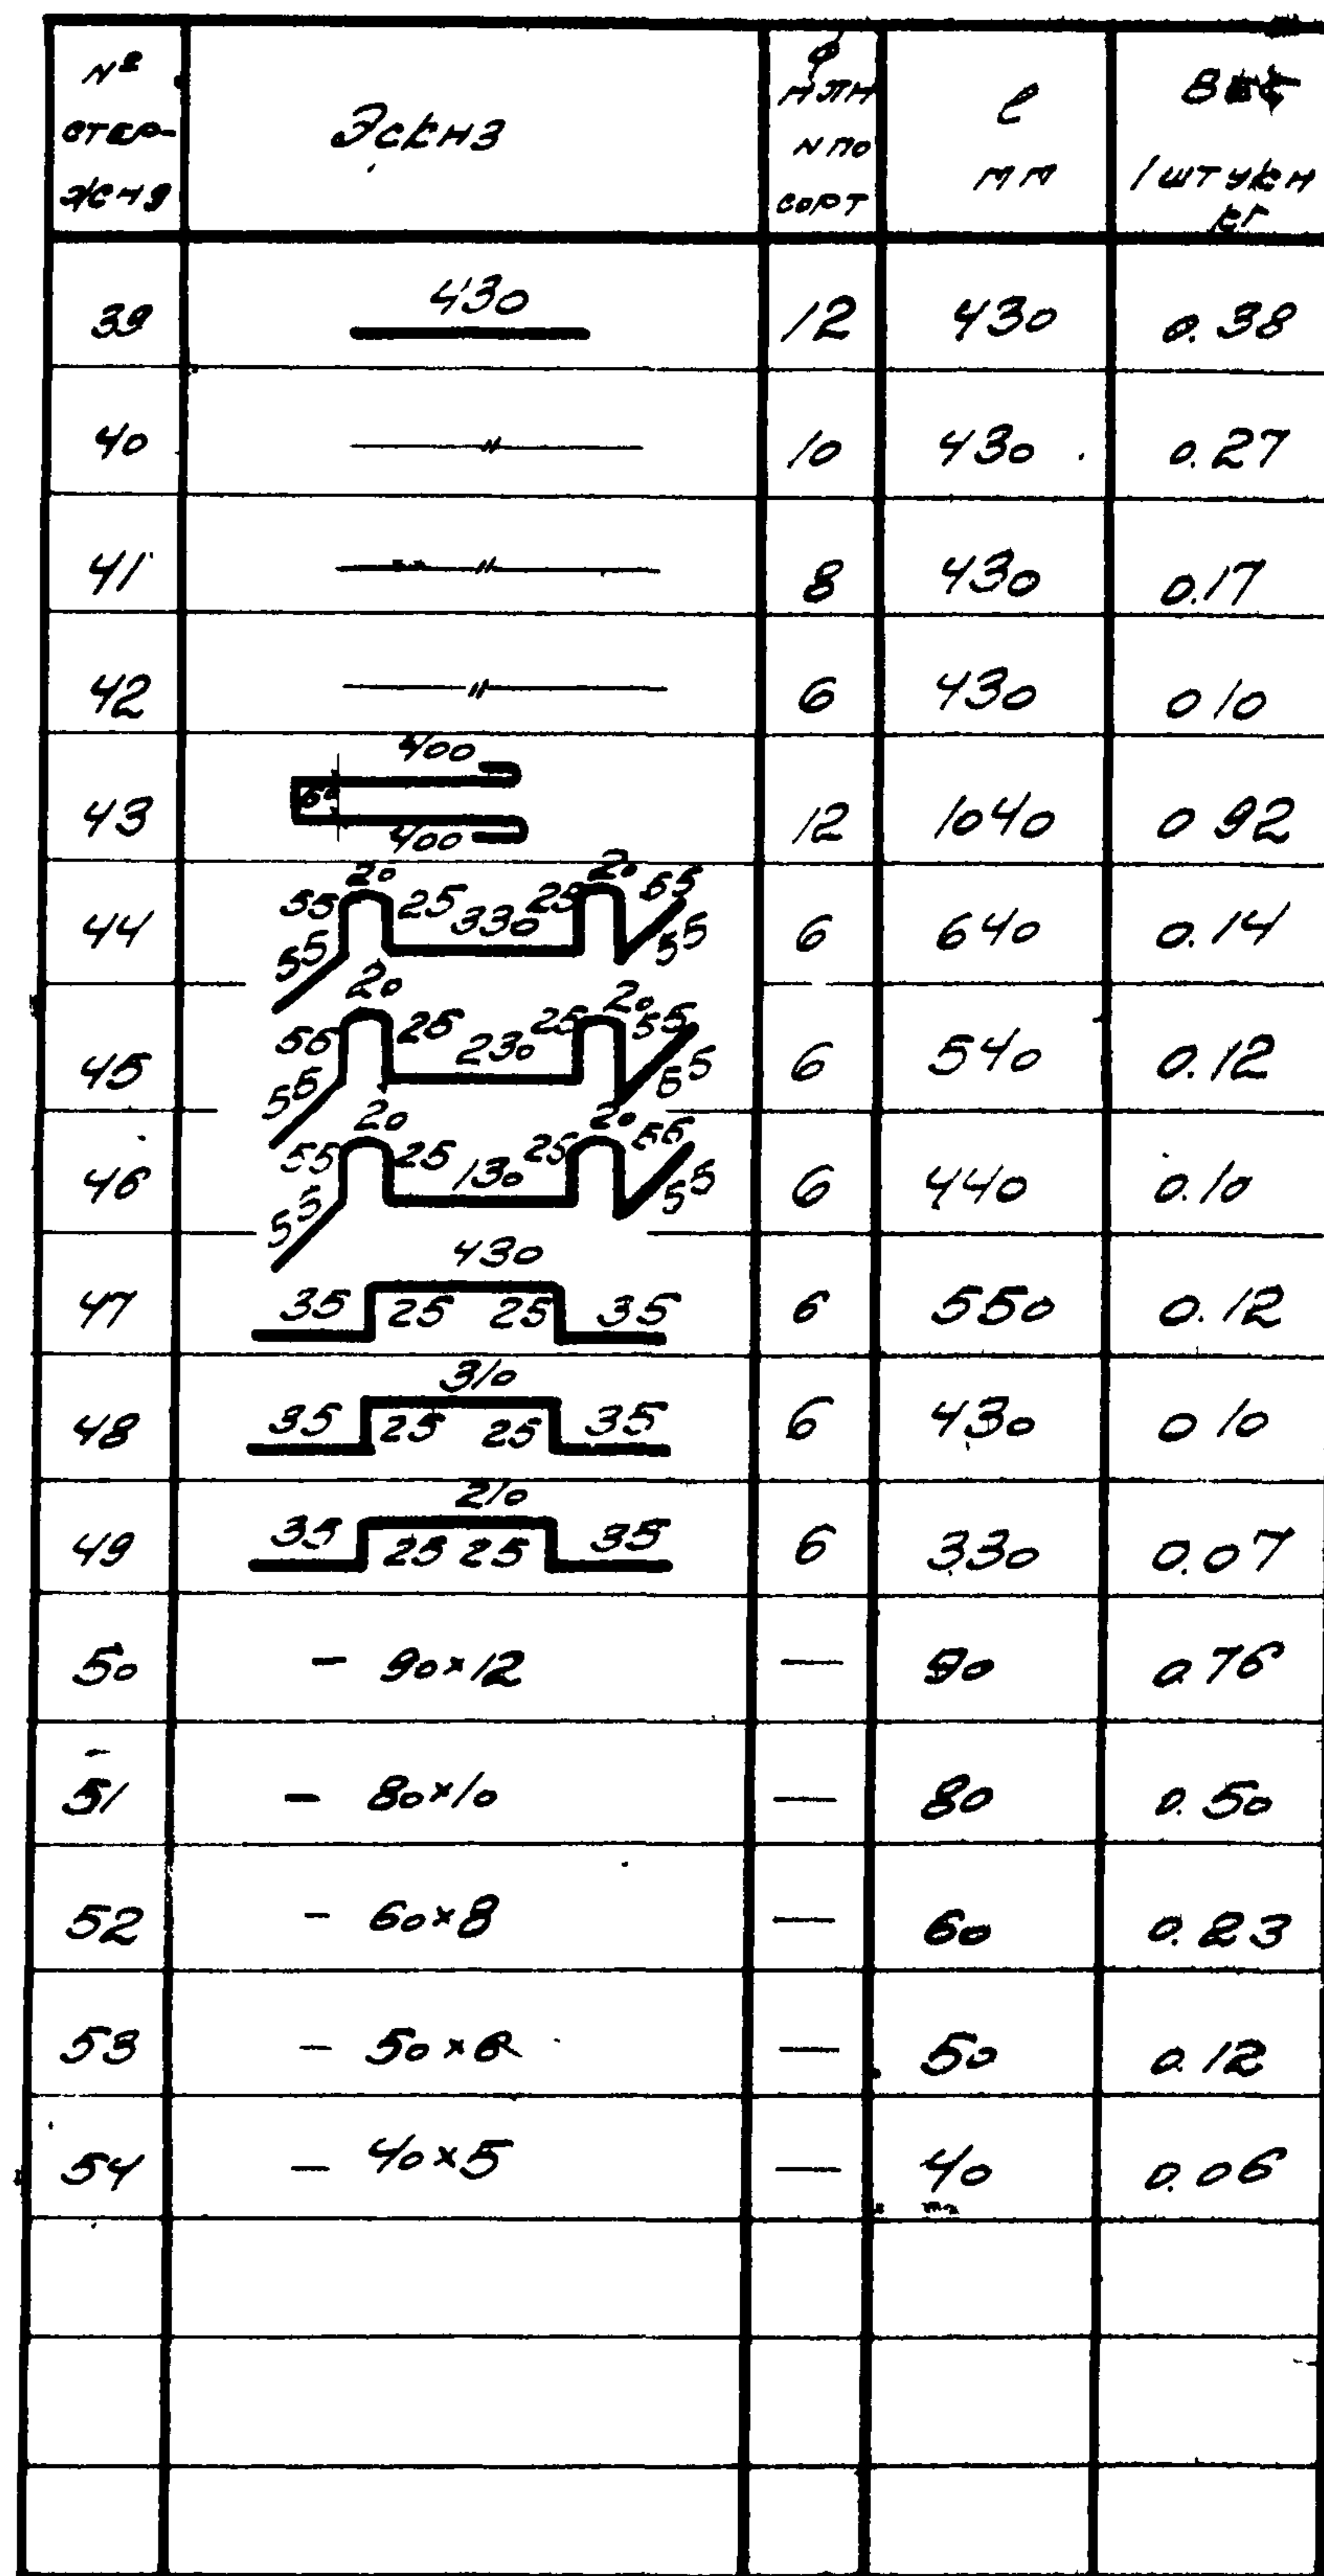 №
стер-
жня
Эскиз
φ
мм
№ по
сорт
l
мм
Вес
1 штуки
кг
39 430 12 430 0.38
40 —〃— 10 430 0.27
41 —〃— 8 430 0.17
42 —〃— 6 430 0 10
400
43 60 12 1040 0 92
400
20 20
55 25 330 25 55
44 6 640 0.14
55 55
20 20
55 25 230 25 55
45 6 540 0.12
55 55
20 20
55 25 130 25 55
46 6 440 0.10
55 55
430
47 35 25 25 35 6 550 0.12
310
48 35 25 25 35 6 430 0 10
210
49 35 25 25 35 6 330 0.07
50 - 90×12 — 90 0.76
51 - 80×10 — 80 0.50
52 - 60×8 — 60 0.23
53 - 50×6 — 50 0.12
54 - 40×5 — 40 0.06